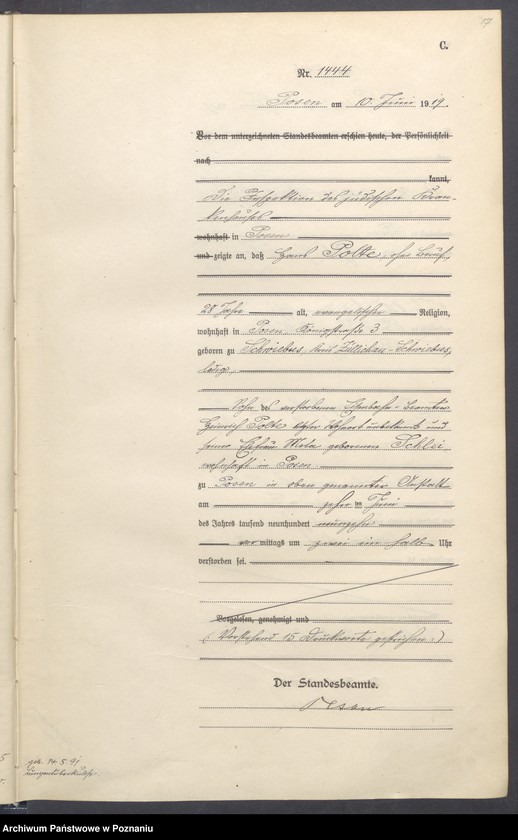 17
C.
Nr. 1444
Posen am 10. Juni 1919.
Vor dem unterzeichneten Standesbeamten erschien heute, der Persönlichkeit
nach
kannt,
Die Inspektion des jüdischen Kran-
kenhauses
wohnhaft in Posen
und zeigte an, daß Hans Polte, ohne Beruf,
28 Jahre alt, evangelischer Religion,
wohnhaft in Posen Königstraße 3
geboren zu Schwiebus, Kreis Züllichau-Schwiebus,
ledig,
Sohn des verstorbenen Eisenbahn-Beamten
Heinrich Polte letzter Wohnort unbekannt und
seiner Ehefrau geborenen Schlei
wohnhaft in Posen
zu Posen in oben genannter Anstalt
am zehnten Juni
des Jahres tausend neunhundert neunzehn
vormittags um zwei ein halb Uhr
verstorben sei.
Vorgelesen, genehmigt und
(Vorstehend 15 Druckworte gestrichen.)
Der Standesbeamte.
geb. 14.5.91
Lungentuberkulose
Archiwum Państwowe w Poznaniu